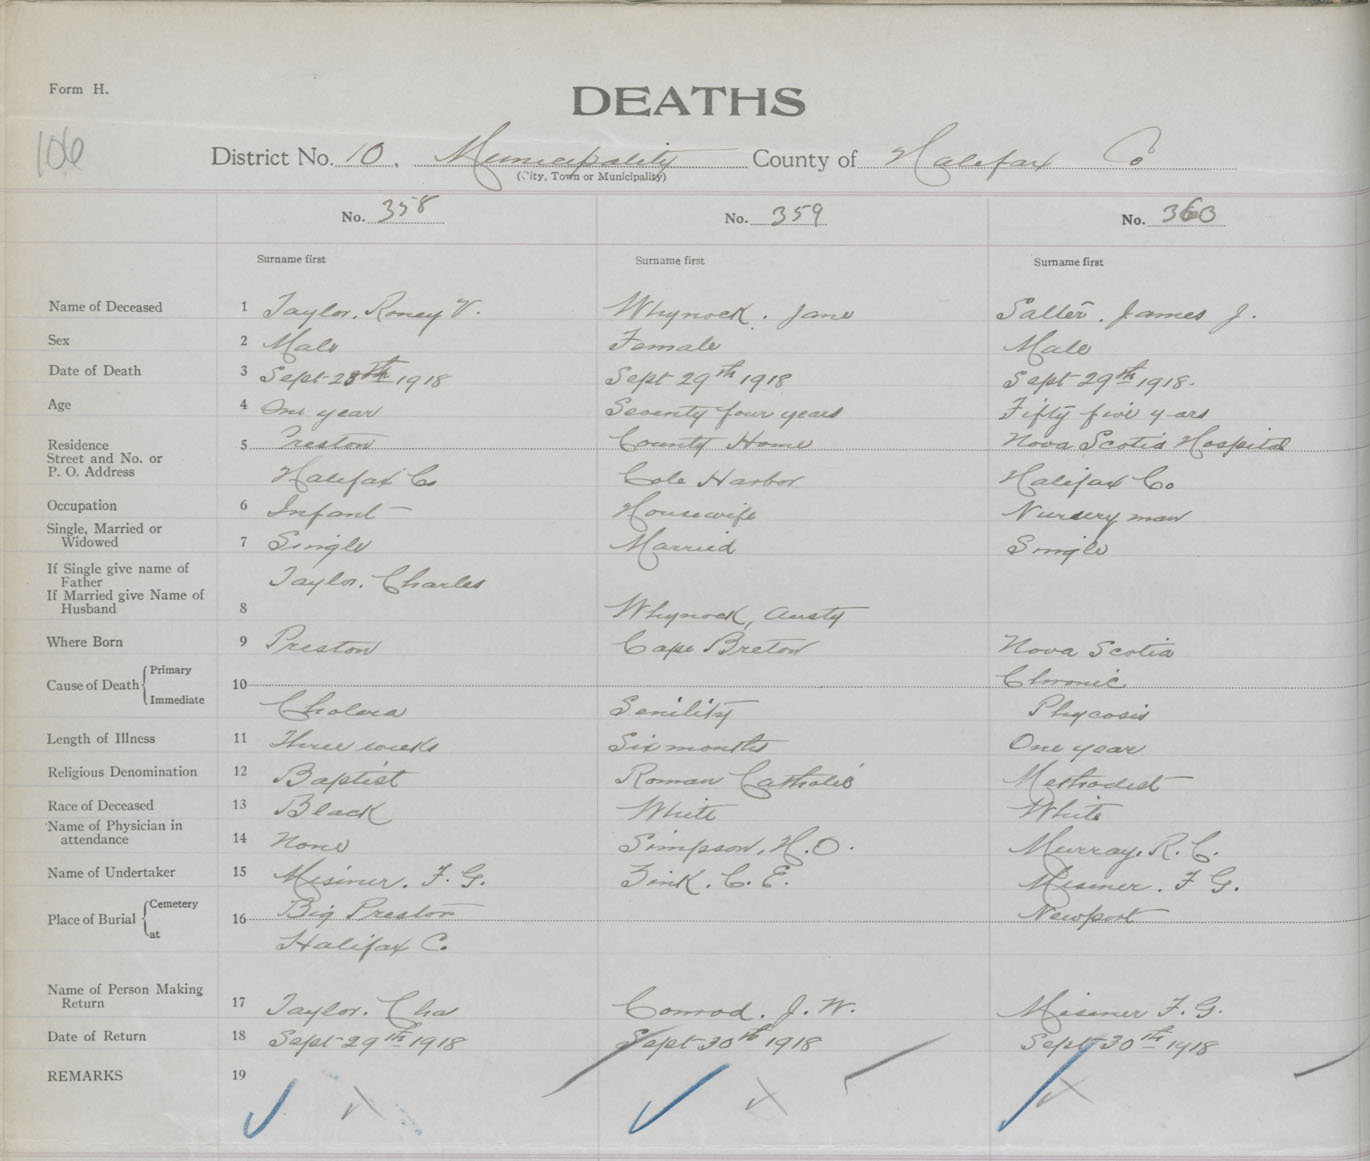 Form H.
DEATHS
106
District No. 10. Municipality County of Halifax Co
(City, Town or Municipality)
No. 358 No. 359 No. 360
Surname first Surname first Surname first
Name of Deceased 1 Taylor, Roney V. Whynock, Jane Salter, James J.
Sex 2 Male Female Male
Date of Death 3 Sept 28th 1918 Sept 29th 1918 Sept 29th 1918.
Age 4 One year Seventy four years Fifty five years
Residence 5 Preston County Home Nova Scotia Hospital
Street and No. or
P. O. Address Halifax Co Cole Harbor Halifax Co
Occupation 6 Infant Housewife Nursery man
Single, Married or
Widowed 7 Single Married Single
If Single give name of
Father Taylor, Charles
If Married give Name of
Husband 8 Whynock, Austy
Where Born 9 Preston Cape Breton Nova Scotia
Cause of Death Primary 10 Chronic
Immediate Cholera Senility Phycosis
Length of Illness 11 Three weeks Six months One year
Religious Denomination 12 Baptist Roman Catholic Methodist
Race of Deceased 13 Black White White
Name of Physician in
attendance 14 None Simpson, H.O. Murray, R.C.
Name of Undertaker 15 Misiner. F.G. Zink. C.E. Misener. F G.
Place of Burial Cemetery 16 Big Preston Newport
at Halifax C.
Name of Person Making
Return 17 Taylor, Cha Conrod. J.W. Misiner F.G.
Date of Return 18 Sept 29th 1918 Sept 30th 1918 Sept 30th 1918
REMARKS 19